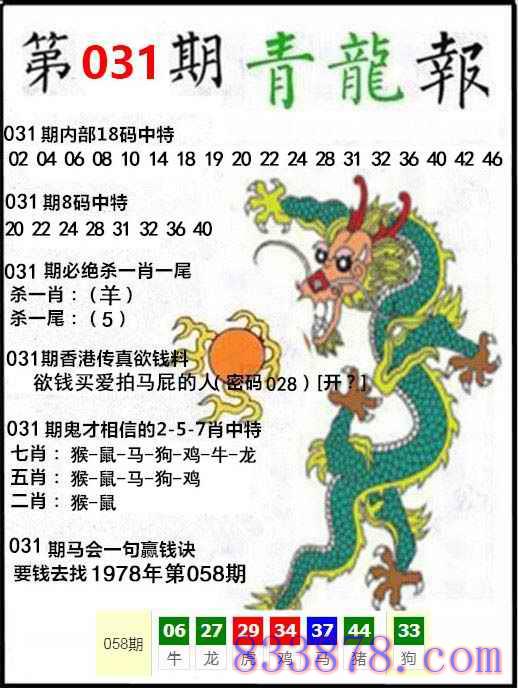 第 031 期 青龍報
031 期内部18码中特
02 04 06 08 10 14 18 19 20 22 24 28 31 32 36 40 42 46
031 期8码中特
20 22 24 28 31 32 36 40
031 期必绝杀一肖一尾
杀一肖：（羊）
杀一尾：（5）
031期香港传真欲钱料
欲钱买爱拍马屁的人（密码028）[开？]
031 期鬼才相信的2-5-7肖中特
七肖：猴-鼠-马-狗-鸡-牛-龙
五肖：猴-鼠-马-狗-鸡
二肖：猴-鼠
031 期马会一句赢钱诀
要钱去找1978年第058期
058期 06 27 29 34 37 44 33
牛 龙 虎 鸡 马 猪 狗
833878.com